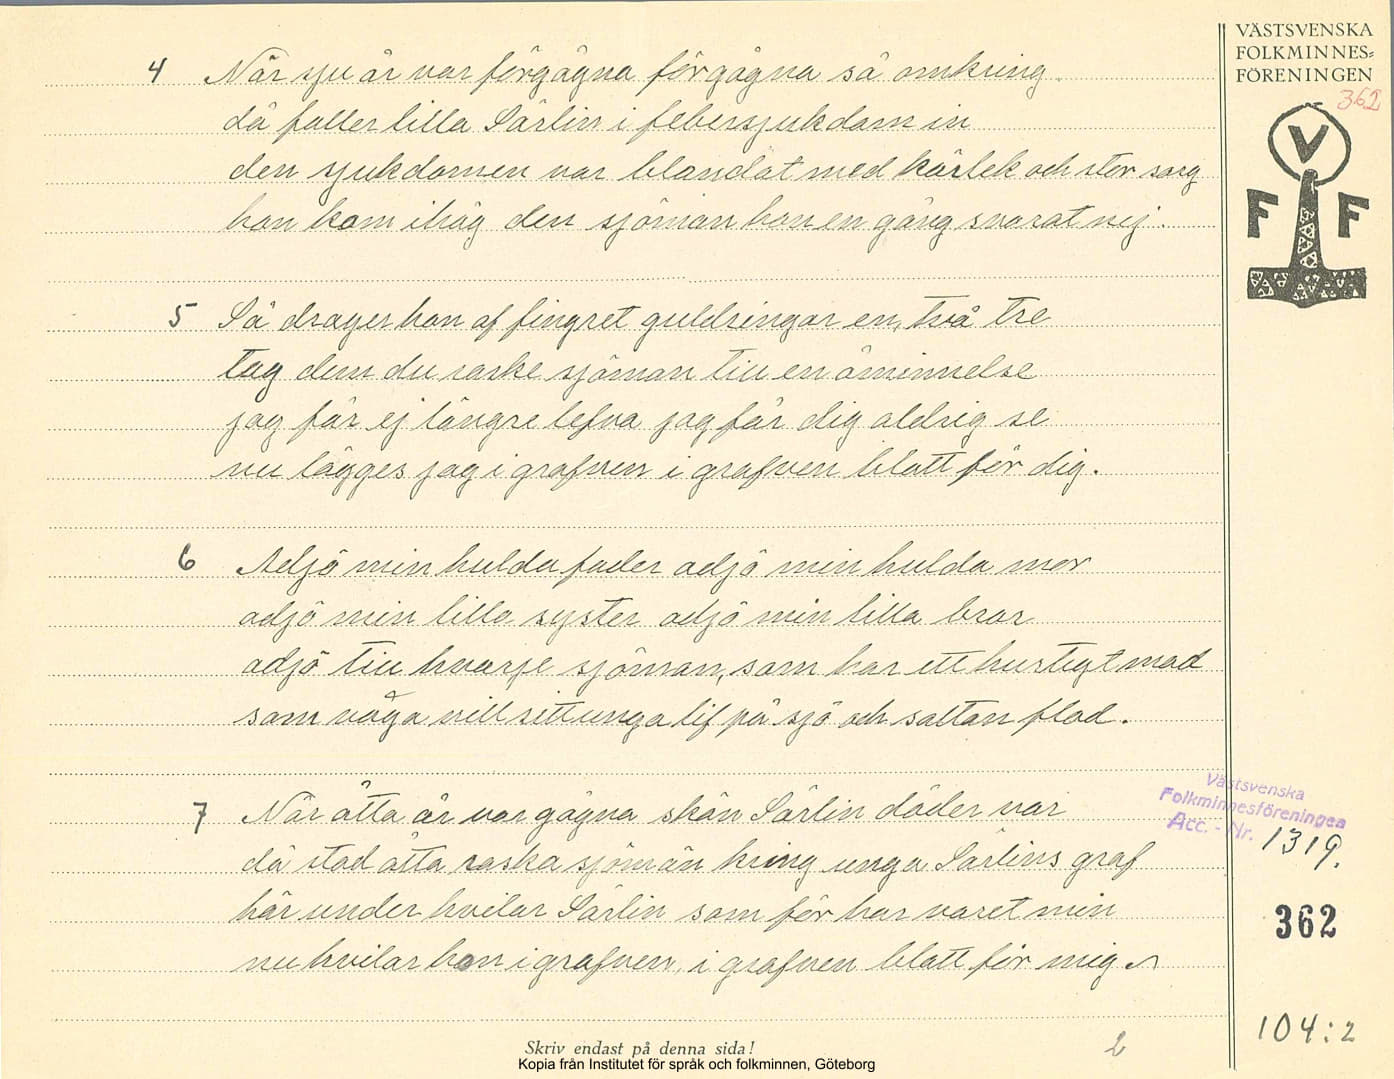 VÄSTSVENSKA
FOLKMINNES=
FÖRENINGEN
362
V
F F
4 När sju år var förgågna förgågna så omkring
då faller lilla Särlin i febersjukdom in
den sjukdomen var blandat med kärlek och stor sorg
hon kom ihåg den sjöman hon en gång svarat nej.
5 Så drager hon af fingret guldringar en, två tre
tag dem du raske sjöman till en åminnelse
jag får ej längre lefva jag får dig aldrig se
nu lägges jag i grafven i grafven blott för dig.
6 Adjö min hulda fader adjö min hulda mor
adjö min lilla syster adjö min lilla bror
adjö till hvarje sjöman, som har ett hurtigt mod
som våga vill sitt unga lif på sjö och saltan flod.
7 När åtta år var gågna skön Särlin döder var
då stod åtta raska sjömän kring unga Särlins graf
här under hvilar Särlin som förr har varet min
nu hvilar hon i grafven, i grafven blott för mig
Västsvenska
Folkminnesföreningen
Acc. - Nr. 1319.
362
104:2
2
Skriv endast på denna sida!
Kopia från Institutet för språk och folkminnen, Göteborg